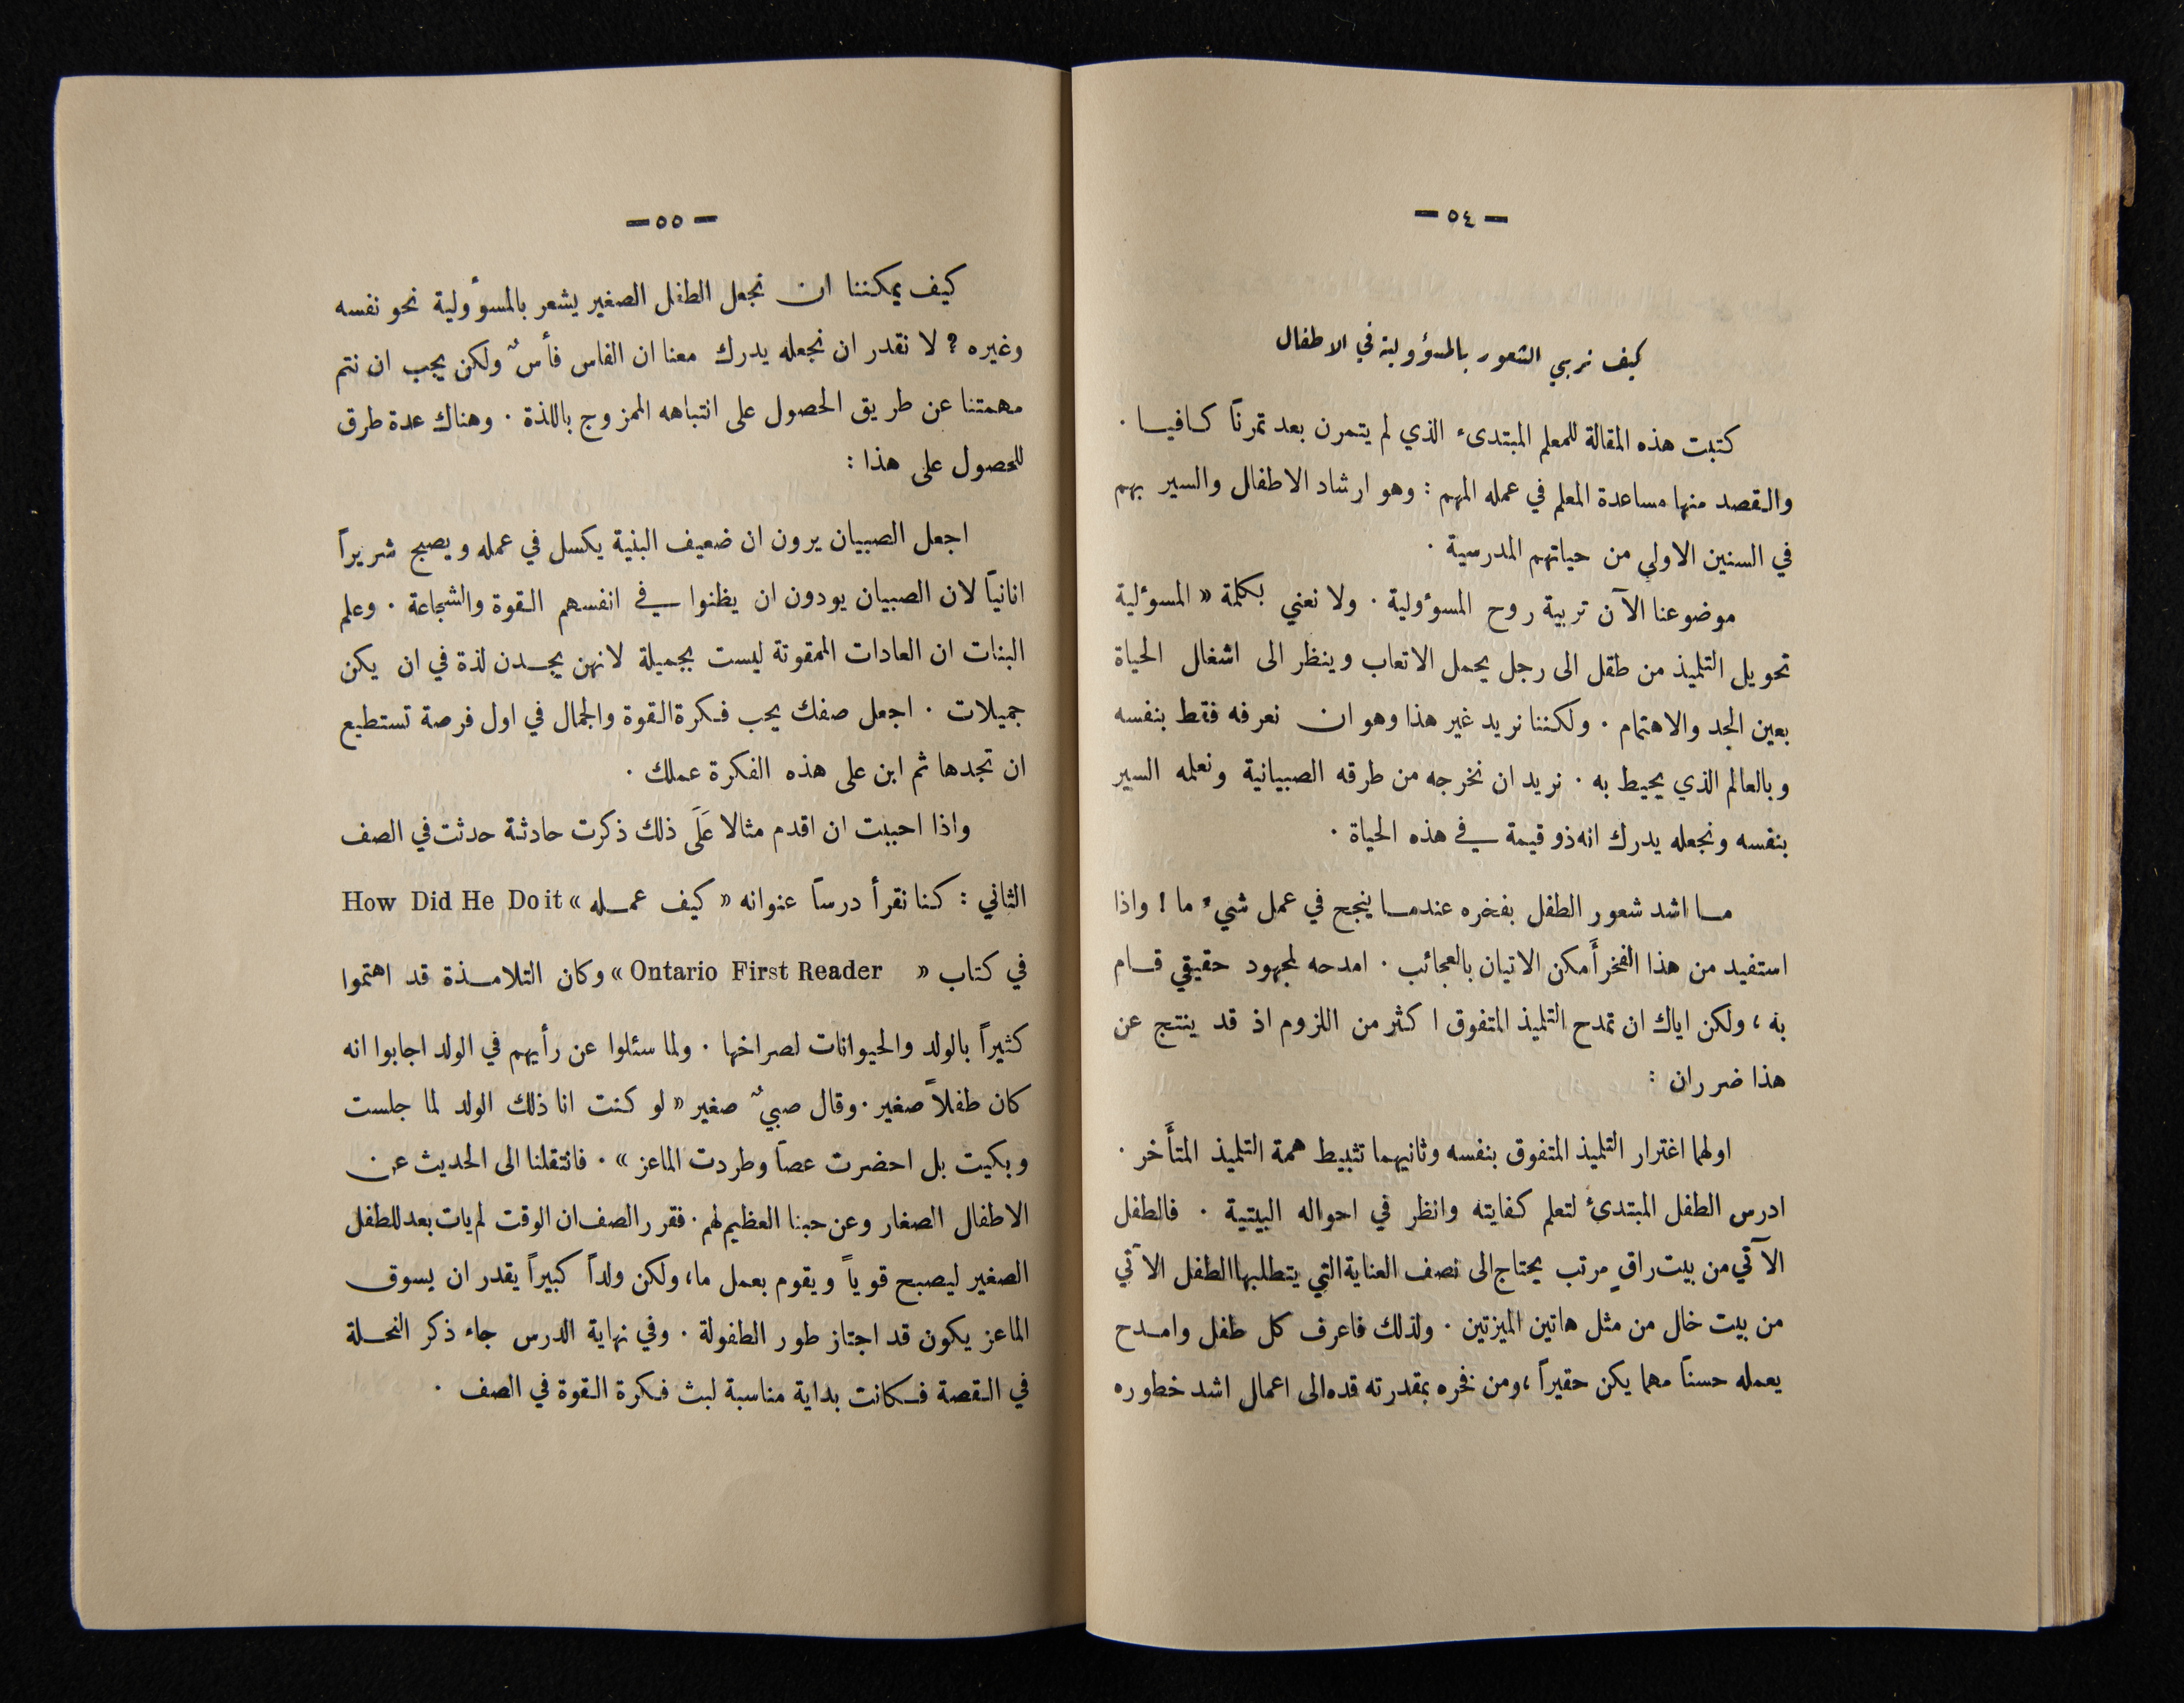 — ٥٤ —
كيف نربي الشعور بالمسؤولية في الاطفال
كتبت هذه المقالة للمعلم المبتدىء الذي لم يتمرن بعد تمرناً كافيا ٠
والقصد منها مساعدة المعلم في عمله المهم : وهو ارشاد الاطفال والسير بهم
في السنين الاولى من حياتهم المدرسية ٠
موضوعنا الآن تربية روح المسوؤلية ٠ ولا نعني بكلمة « المسوئلية
تحويل التلميذ من طفل الى رجل يحمل الاتعاب وينظر الى اشغال الحياة
بعين الجد والاهتمام ٠ ولكننا نريد غير هذا وهو ان نعرفه فقط بنفسه
وبالعالم الذي يحيط به ٠ نريد ان نخرجه من طرقه الصبيانية ونعلمه السير
بنفسه ونجعله يدرك انه ذو قيمة في هذه الحياة ٠
ما اشد شعور الطفل بفخره عندما ينجح في عمل شيء ما ! واذا
استفيد من هذا الفخر أَمكن الاتيان بالعجائب ٠ امدحه لمجهود حقيقي قام
به ، ولكن اياك ان تمدح التلميذ المتفوق اكثر من اللزوم اذ قد ينتج عن
هذا ضرران :
اولهما اغترار التلميذ المتفوق بنفسه وثانيهما تثبيط همة التلميذ المتأَخر ٠
ادرس الطفل المبتدئ لتعلم كفايته وانظر في احواله البيتية ٠ فالطفل
الآتي من بيت راقٍ مرتب يحتاج الى نصف العناية التي يتطلبها الطفل الآتي
من بيت خال من مثل هاتين الميزتين ٠ ولذلك فاعرف كل طفل وامدح
يعمله حسناً مهما يكن حقيراً ، ومن فخره بمقدرته قده الى اعمال اشد خطوره
— ٥٥ —
كيف يمكننا ان نجعل الطفل الصغير يشعر بالمسوؤلية نحو نفسه
وغيره ؟ لا نقدر ان نجعله يدرك معنا ان الفاس فأسٌ ولكن يجب ان نتم
مهمتنا عن طريق الحصول على انتباهه الممزوج باللذة ٠ وهناك عدة طرق
للحصول على هذا :
اجعل الصبيان يرون ان ضعيف البنية يكسل في عمله ويصبح شريراً
انانياً لان الصبيان يودون ان يظنوا في انفسهم القوة والشجاعة ٠ وعلم
البنات ان العادات الممقوتة ليست بجميلة لانهن يجدن لذة في ان يكن
جميلات ٠ اجعل صفك يحب فكرة القوة والجمال في اول فرصة تستطيع
ان تجدها ثم ابن على هذه الفكرة عملك ٠
واذا احببت ان اقدم مثالا عَلَى ذلك ذكرت حادثة حدثت في الصف
الثاني : كنا نقرأ درساً عنوانه « كيف عمله » How Did He Do it
في كتاب « Ontario First Reader » وكان التلامذة قد اهتموا
كثيراً بالولد والحيوانات لصراخها ٠ ولما سئلوا عن رأيهم في الولد اجابوا انه
كان طفلاً صغير ٠ وقال صبيٌ صغير « لو كنت انا ذلك الولد لما جلست
وبكيت بل احضرت عصاً وطردت الماعز » ٠ فانتقلنا الى الحديث عن
الاطفال الصغار وعن حبنا العظيم لهم ٠ فقرر الصف ان الوقت لم يات بعد للطفل
الصغير ليصبح قوياً ويقوم بعمل ما ، ولكن ولداً كبيراً يقدر ان يسوق
الماعز يكون قد اجتاز طور الطفولة ٠ وفي نهاية الدرس جاء ذكر النحلة
في القصة فكانت بداية مناسبة لبث فكرة القوة في الصف ٠